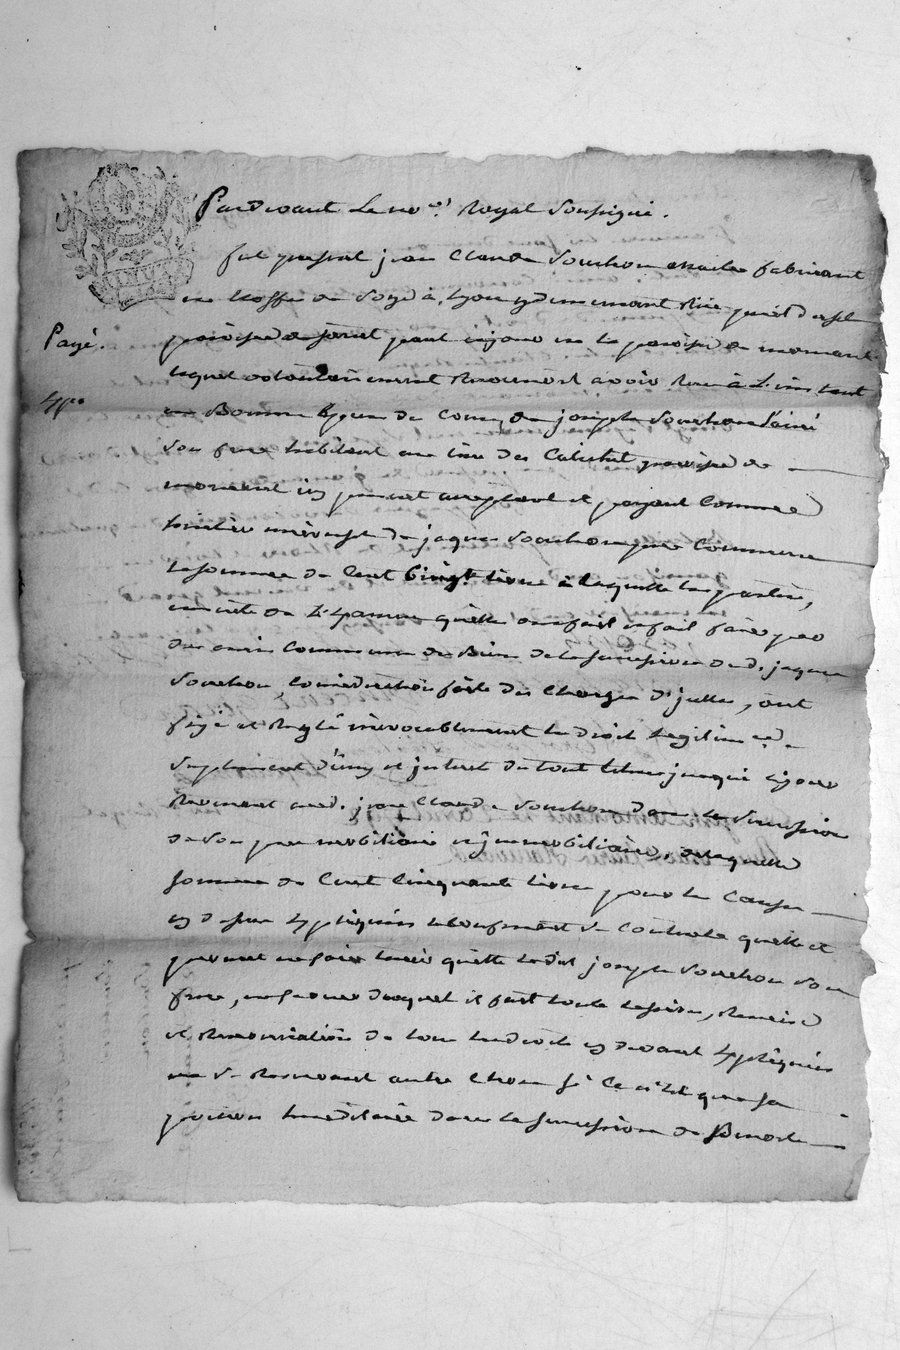 Pardevant Le no.re Royal Soussigné.
fut present jean Claude Souchon maitre fabricant
en Etoffe de Soye à Lyon y demeurant Rue
paroisse de present en la paroisse de mornant
Payé.
lequel volontairement Reconnoit avoir Reçu à L'instant
en Bonnes Especes de Cours de joseph Souchon L'ainé
Son frere habitant au lieu du paroisse de
mornant icy present acceptant et payant Comme
heritier de jaques Souchon pere Commun
La Somme de Cent livres à laquelle les parties,
ensuite de L'Examen qu'elles ont fait et fait faire par
des amis Communs des Biens de la Succession dud. jaques
Souchon Consideration faite des Charges d'icelle, ont
fixé et Reglé irrevocablement les droits Legitimes
Suplement d'iceux et interet du tout jusqu'à ce jour
Revenant aud. jean Claude Souchon dans la Succession
de Son pere mobiliaire et immobiliaire, de laquelle
Somme de Cent Cinquante livres pour les Causes
cy dessus Expliquées Se Contente quitte et
promet en faire tenir quitte led. joseph Souchon Son
frere, en faveur duquel il fait toute Cession, Remise
et Renonciation de tous les droits cy devant Expliqués
ne Se Reservant autre Chose Si Ce n'est que Sa
portion hereditaire dans la Succession de Benoit